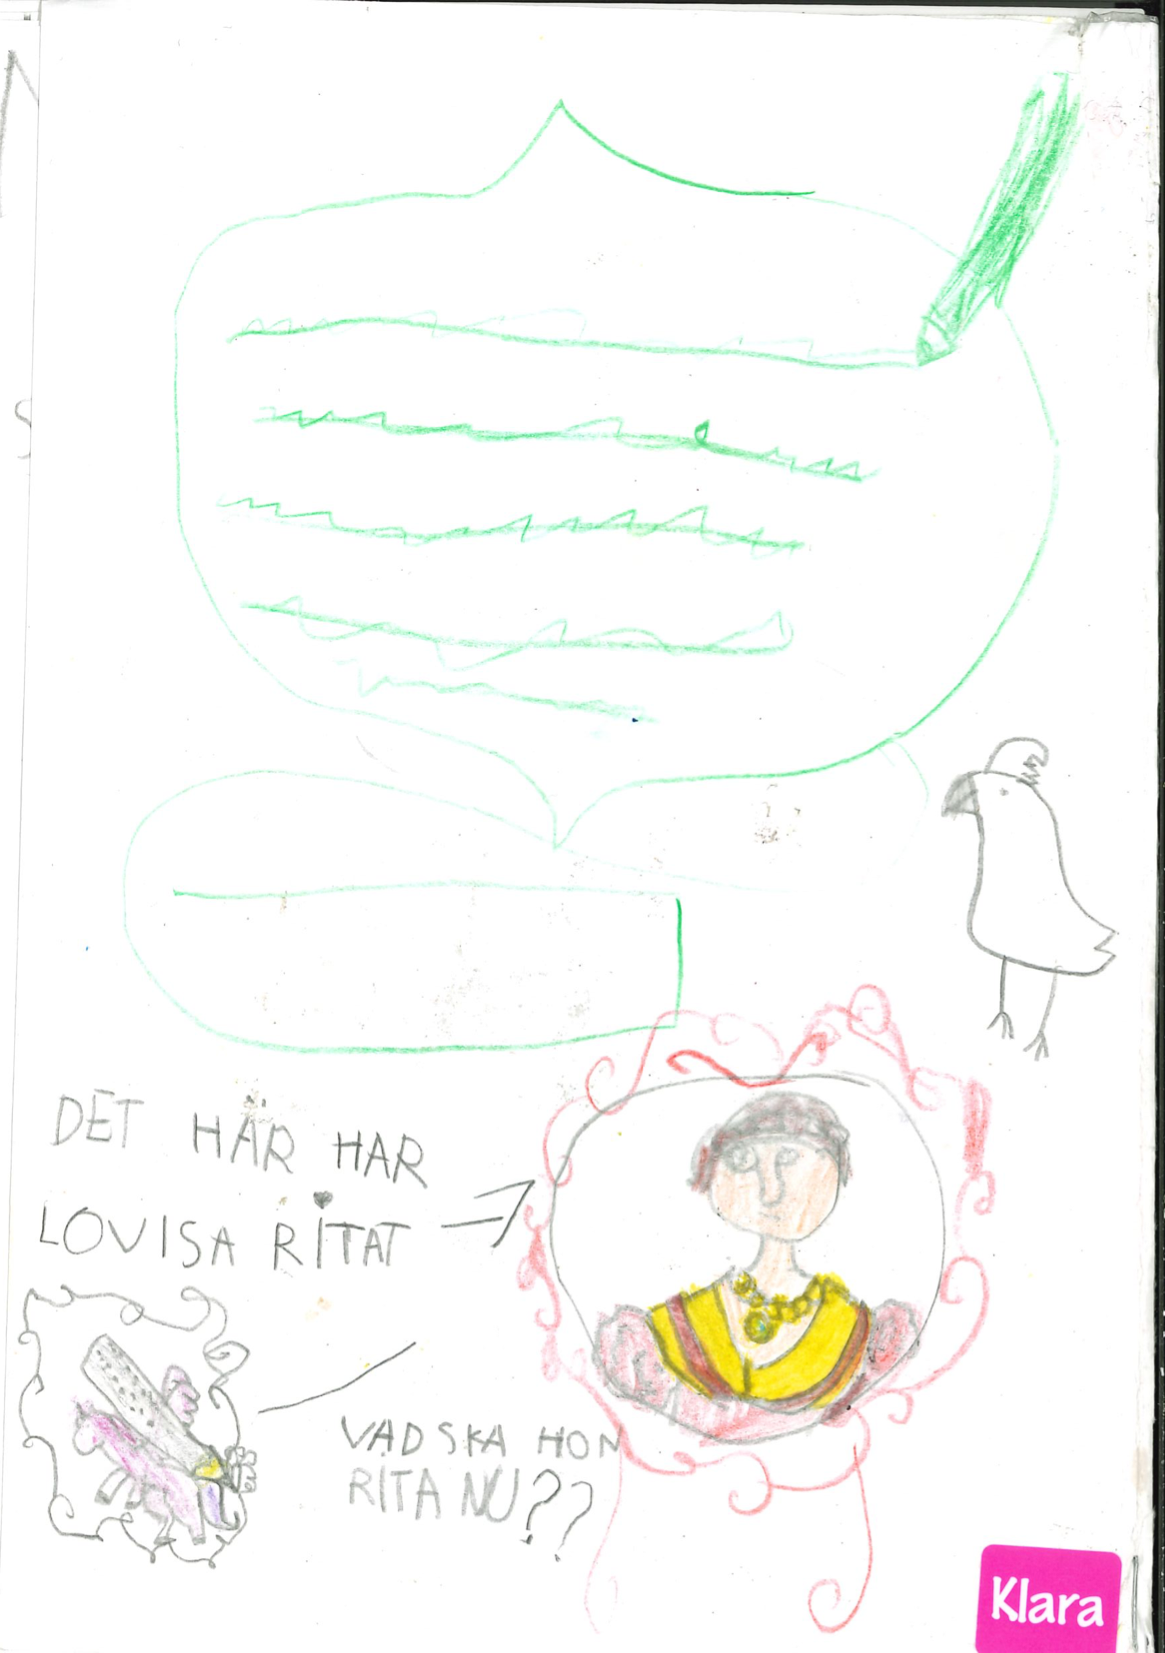 DET HÄR HAR
LOVISA RITAT
VAD SKA HON
RITA NU??
Klara